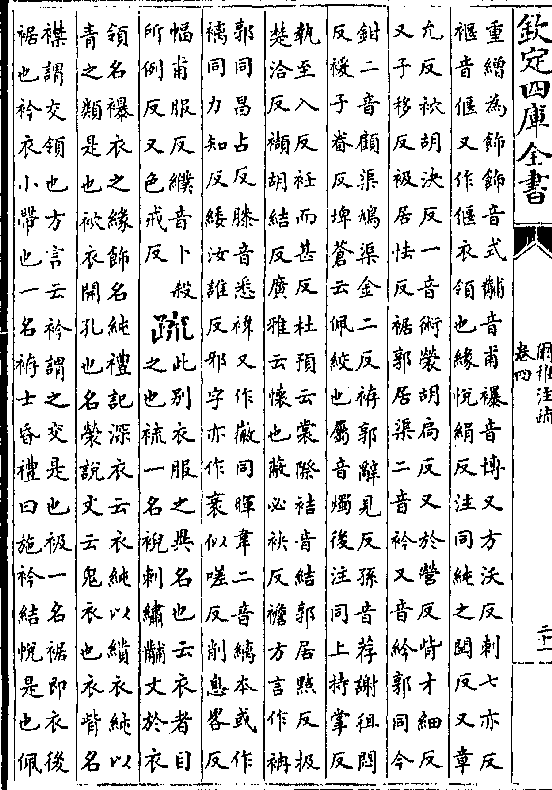 欽定四庫全書
爾雅注疏
卷四
重繒為飾飾音式黼音甫襮音博又方沃反刺七亦反
褗音偃又作偃衣領也緣悅絹反注同純之閏反又章
允反袕胡決反一音術褮胡扃反又於營反眥才細反
又子移反衱居怯反裾郭居渠二音衿又音紟郭同今
鉗二音顧渠鳩渠金二反袸郭辭見反孫音荐謝徂悶
反褑于眷反埤蒼云佩絞也屬音燭後注同上持掌反
執至入反衽而甚反杜預云裳際袺音結郭居黠反扱
楚洽反襭胡結反廣雅云懷也蔽必袂反襜方言作袡
郭同昌占反膝音悉褘又作徽同暉韋二音縭本或作
褵同力知反緌汝誰反邪字亦作衺似嗟反削息畧反
幅甫服反纀音卜殺
所例反又色戒反
疏
此別衣服之異名也云衣者目
之也裗一名裞刺繡黼文於衣
領名襮衣之緣飾名純禮記深衣云衣純以繢衣純以
青之類是也袕衣開孔也名褮說文云鬼衣也衣眥名
襟謂交領也方言云衿謂之交是也衱一名裾即衣後
裾也衿衣小帶也一名袸士昏禮曰施衿結帨是也佩